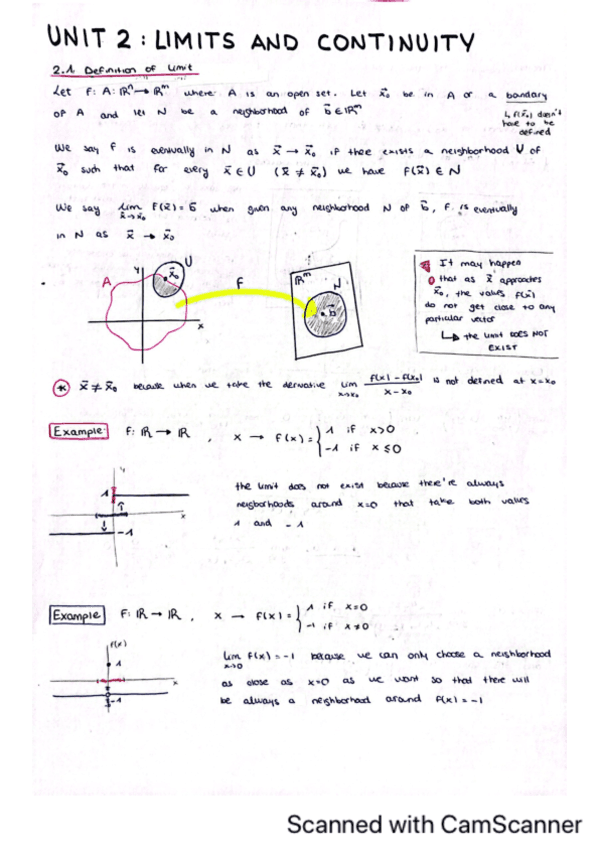 UNIT 2 : LIMITS AND CONTINUITY
2.1 Definition of Limit
Let f: A: ℝⁿ → ℝᵐ where A is an open set. Let x⃗₀ be in A or a bondary
↳ f(x⃗₀) doesn't
have to be
defined
of A and let N be a neighborhood of b⃗ ∈ ℝᵐ
We say f is eventually in N as x⃗ → x⃗₀ if there exists a neighborhood U of
x⃗₀ such that for every x⃗ ∈ U (x⃗ ≠ x⃗₀) we have f(x⃗) ∈ N
We say lim f(x⃗) = b⃗ when given any neighborhood N of b⃗, f is eventually
x⃗→x⃗₀
in N as x⃗ → x⃗₀
A
y
x⃗₀
U
x
F
ℝᵐ
N
b⃗
It may happen
that as x⃗ approaches
x⃗₀, the values f(x⃗)
do not get close to any
particular vector
↳ the limit DOES NOT
EXIST
* x⃗ ≠ x⃗₀ because when we take the derivative lim f(x)-f(x₀) / x-x₀ is not defined at x=x₀
x→x₀
Example: F: ℝ → ℝ , x → f(x) = { 1 if x>0
-1 if x ≤ 0
y
1
x
-1
the limit does not exist because there're always
neigborhoods around x=0 that take both values
1 and -1
Example F: ℝ → ℝ , x → f(x) = { 1 if x=0
-1 if x≠0
f(x)
1
x
-1
lim f(x) = -1 because we can only choose a neighborhood
x→0
as close as x=0 as we want so that there will
be always a neighborhood around f(x) = -1
Scanned with CamScanner